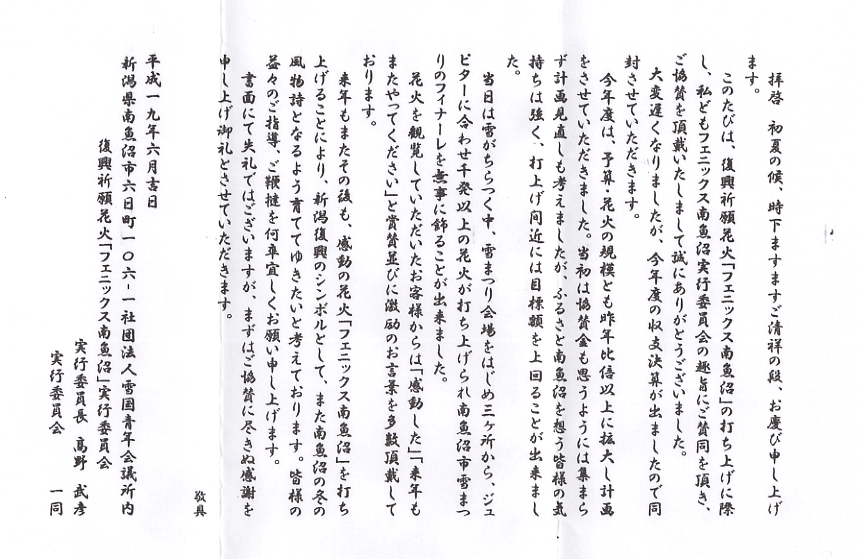 拝啓　初夏の候、時下ますますご清祥の段、お慶び申し上げ
ます。
このたびは、復興祈願花火「フェニックス南魚沼」の打ち上げに際
し、私どもフェニックス南魚沼実行委員会の趣旨にご賛同を頂き、
ご協賛を頂戴いたしまして誠にありがとうございました。
大変遅くなりましたが、今年度の収支決算が出ましたので同
封させていただきます。
今年度は、予算・花火の規模とも昨年比倍以上に拡大し計画
をさせていただきました。当初は協賛金も思うようには集まら
ず計画見直しも考えましたが、ふるさと南魚沼を想う皆様の気
持ちは強く、打上げ間近には目標額を上回ることが出来まし
た。
当日は雪がちらつく中、雪まつり会場をはじめ三ヶ所から、ジュ
ピターに合わせ千発以上の花火が打ち上げられ南魚沼市雪まつ
りのフィナーレを無事に飾ることが出来ました。
花火を観覧していただいたお客様からは「感動した」「来年も
またやってください」と賞賛並びに激励のお言葉を多数頂戴して
おります。
来年もまたその後も、感動の花火「フェニックス南魚沼」を打ち
上げることにより、新潟復興のシンボルとして、また南魚沼の冬の
風物詩となるよう育ててゆきたいと考えております。皆様の
益々のご指導、ご鞭撻を何卒宜しくお願い申し上げます。
書面にて失礼ではございますが、まずはご協賛に尽きぬ感謝を
申し上げ御礼とさせていただきます。
敬具
平成一九年六月吉日
新潟県南魚沼市六日町一〇六-一社団法人雪国青年会議所内
復興祈願花火「フェニックス南魚沼」実行委員会
実行委員長　高野　武彦
実行委員会　一同